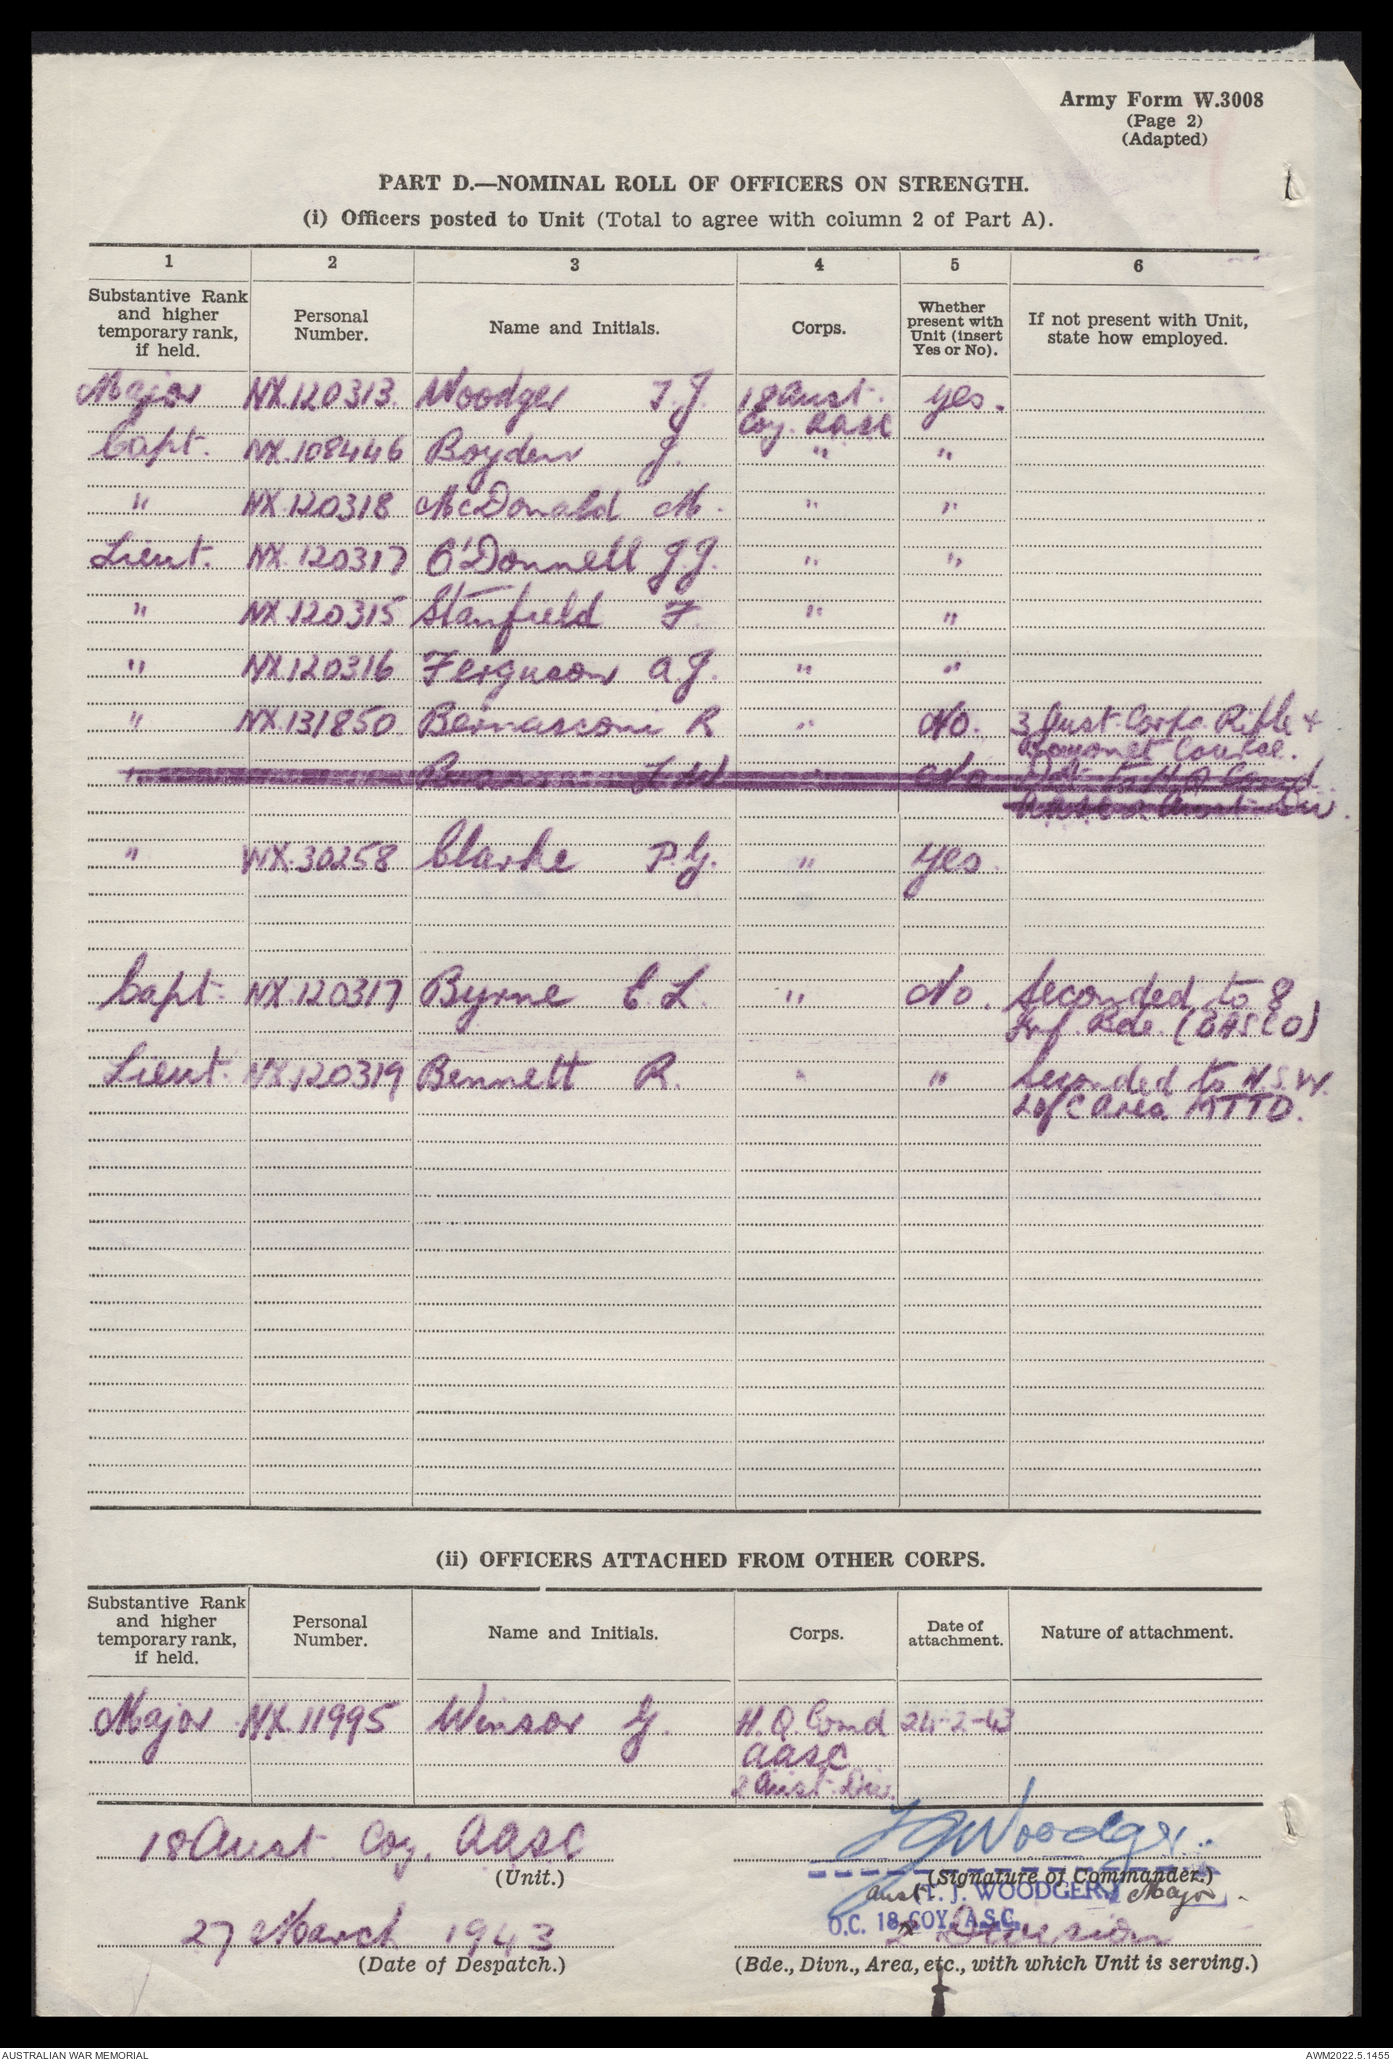 Army Form W.3008
(Page 2)
(Adapted)
PART D.—NOMINAL ROLL OF OFFICERS ON STRENGTH.
(i) Officers posted to Unit (Total to agree with column 2 of Part A).
1 2 3 4 5 6
Substantive Rank and higher temporary rank, if held. Personal Number. Name and Initials. Corps. Whether present with Unit (insert Yes or No). If not present with Unit, state how employed.
Major NX.120313. Woodger T.J. 18 Aust. yes.
Coy. AASC
Capt. NX.108446 Boyden J. " "
" NX.120318 McDonald M. " "
Lieut. NX.120317 O'Donnell J.J. " "
" NX.120315 Stanfield F. " "
" NX.120316 Ferguson A.J. " "
" NX.131850 Bernasconi R " No. 3 Aust. Corps. Rifle +
Bayonet Course.
" No
" WX.30258 Clarke P.G. " yes.
Capt. NX.120317 Byrne C.L. " No. Seconded to 8
Inf. Bde. (BASCO)
Lieut. NX.120319 Bennett R. " " Seconded to N.S.W.
L of C Area MTTD.
(ii) OFFICERS ATTACHED FROM OTHER CORPS.
Substantive Rank and higher temporary rank, if held. Personal Number. Name and Initials. Corps. Date of attachment. Nature of attachment.
Major NX.11995 Winsor G. H.Q Comd 24-2-43
AASC
2 Aust. Div.
18 Aust. Coy. AASC TJWoodger.
(Unit.) (Signature of Commander.)
Aust T. J. WOODGER, Major.
O.C. 18 COY. A.S.C.
27 March 1943 2 Division
(Date of Despatch.) (Bde., Divn., Area, etc., with which Unit is serving.)
AUSTRALIAN WAR MEMORIAL AWM2022.5.1455